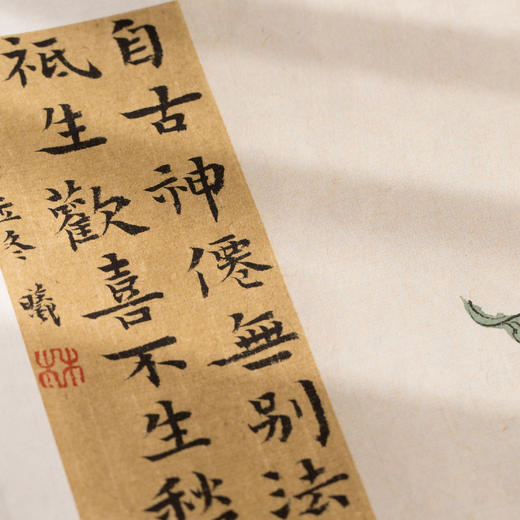 自古神僊無别法
祗生歡喜不生愁
立冬
曦